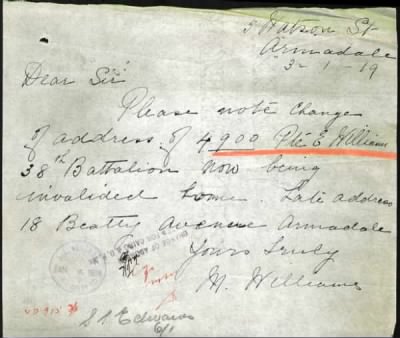 5 Watson St
Armadale
3-1-19
Dear Sir
Please note change
of address of 4900 Pte E William
38th Battalion now being
invalided home. Late address
18 Beatty Avenue Armadale
Yours truly
M. Williams